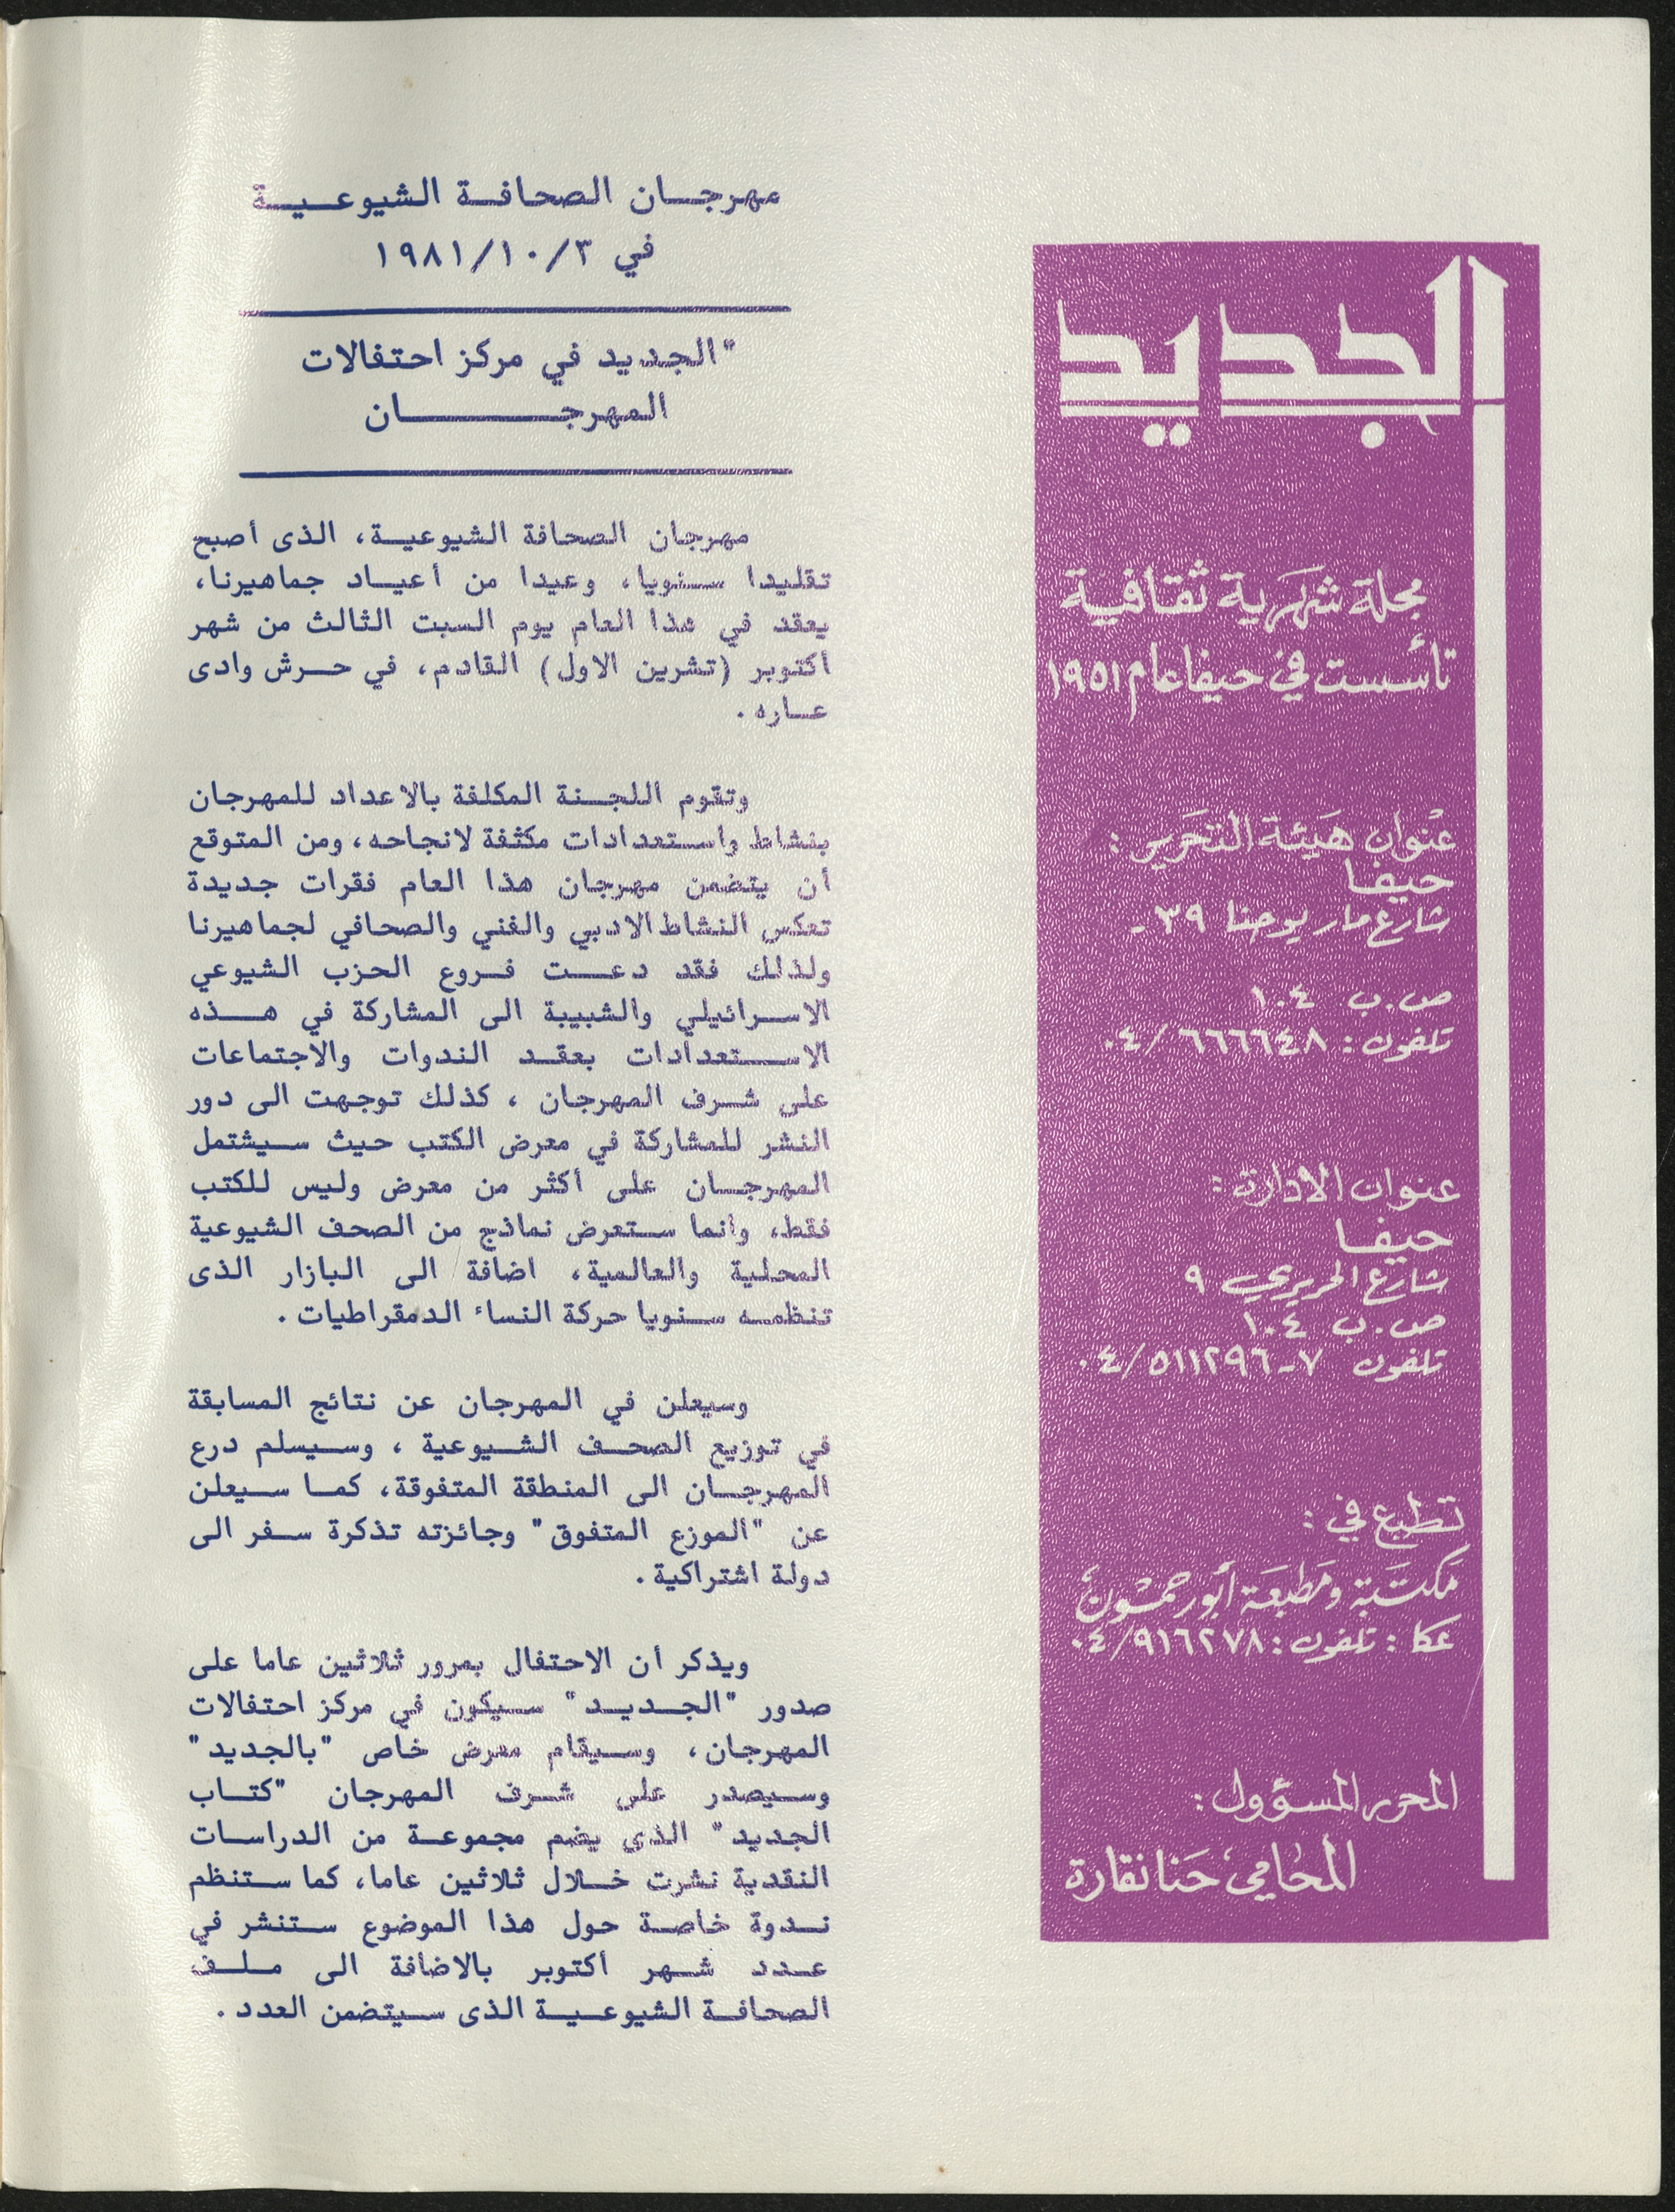 الجديد
مجلة شهرية ثقافية
تأسست في حيفا عام ١٩٥١
عنوان هيئة التحرير :
حيفا
شارع مار يوحنا ٣٩ -
ص.ب ١٠٤
تلفون : ٠٤/٦٦٦٦٤٨
عنوان الادارة :
حيفا
شارع الحريري ٩
ص.ب ١٠٤
تلفون ٧-٠٤/٥١١٢٩٦
تطبع في :
مكتبة ومطبعة أبو رحمون
عكا : تلفون : ٠٤/٩١٦٢٧٨
المحرر المسؤول :
المحامي حنا نقارة
مهرجان الصحافة الشيوعية
في ١٩٨١/١٠/٣
"الجديد في مركز احتفالات
المهرجان
مهرجان الصحافة الشيوعية، الذى أصبح
تقليدا سنويا، وعيدا من أعياد جماهيرنا،
يعقد في هذا العام يوم السبت الثالث من شهر
أكتوبر (تشرين الاول) القادم، في حرش وادى
عاره .
وتقوم اللجنة المكلفة بالاعداد للمهرجان
بنشاط واستعدادات مكثفة لانجاحه، ومن المتوقع
أن يتضمن مهرجان هذا العام فقرات جديدة
تعكس النشاط الادبي والفني والصحافي لجماهيرنا
ولذلك فقد دعت فروع الحزب الشيوعي
الاسرائيلي والشبيبة الى المشاركة في هذه
الاستعدادات بعقد الندوات والاجتماعات
على شرف المهرجان ، كذلك توجهت الى دور
النشر للمشاركة في معرض الكتب حيث سيشتمل
المهرجان على أكثر من معرض وليس للكتب
فقط، وانما ستعرض نماذج من الصحف الشيوعية
المحلية والعالمية، اضافة الى البازار الذى
تنظمه سنويا حركة النساء الدمقراطيات .
وسيعلن في المهرجان عن نتائج المسابقة
في توزيع الصحف الشيوعية ، وسيسلم درع
المهرجان الى المنطقة المتفوقة، كما سيعلن
عن "الموزع المتفوق" وجائزته تذكرة سفر الى
دولة اشتراكية .
ويذكر أن الاحتفال بمرور ثلاثين عاما على
صدور "الجديد" سيكون في مركز احتفالات
المهرجان، وسيقام معرض خاص "بالجديد"
وسيصدر على شرف المهرجان "كتاب
الجديد" الذى يضم مجموعة من الدراسات
النقدية نشرت خلال ثلاثين عاما، كما ستنظم
ندوة خاصة حول هذا الموضوع ستنشر في
عدد شهر أكتوبر بالاضافة الى ملف
الصحافة الشيوعية الذى سيتضمن العدد .